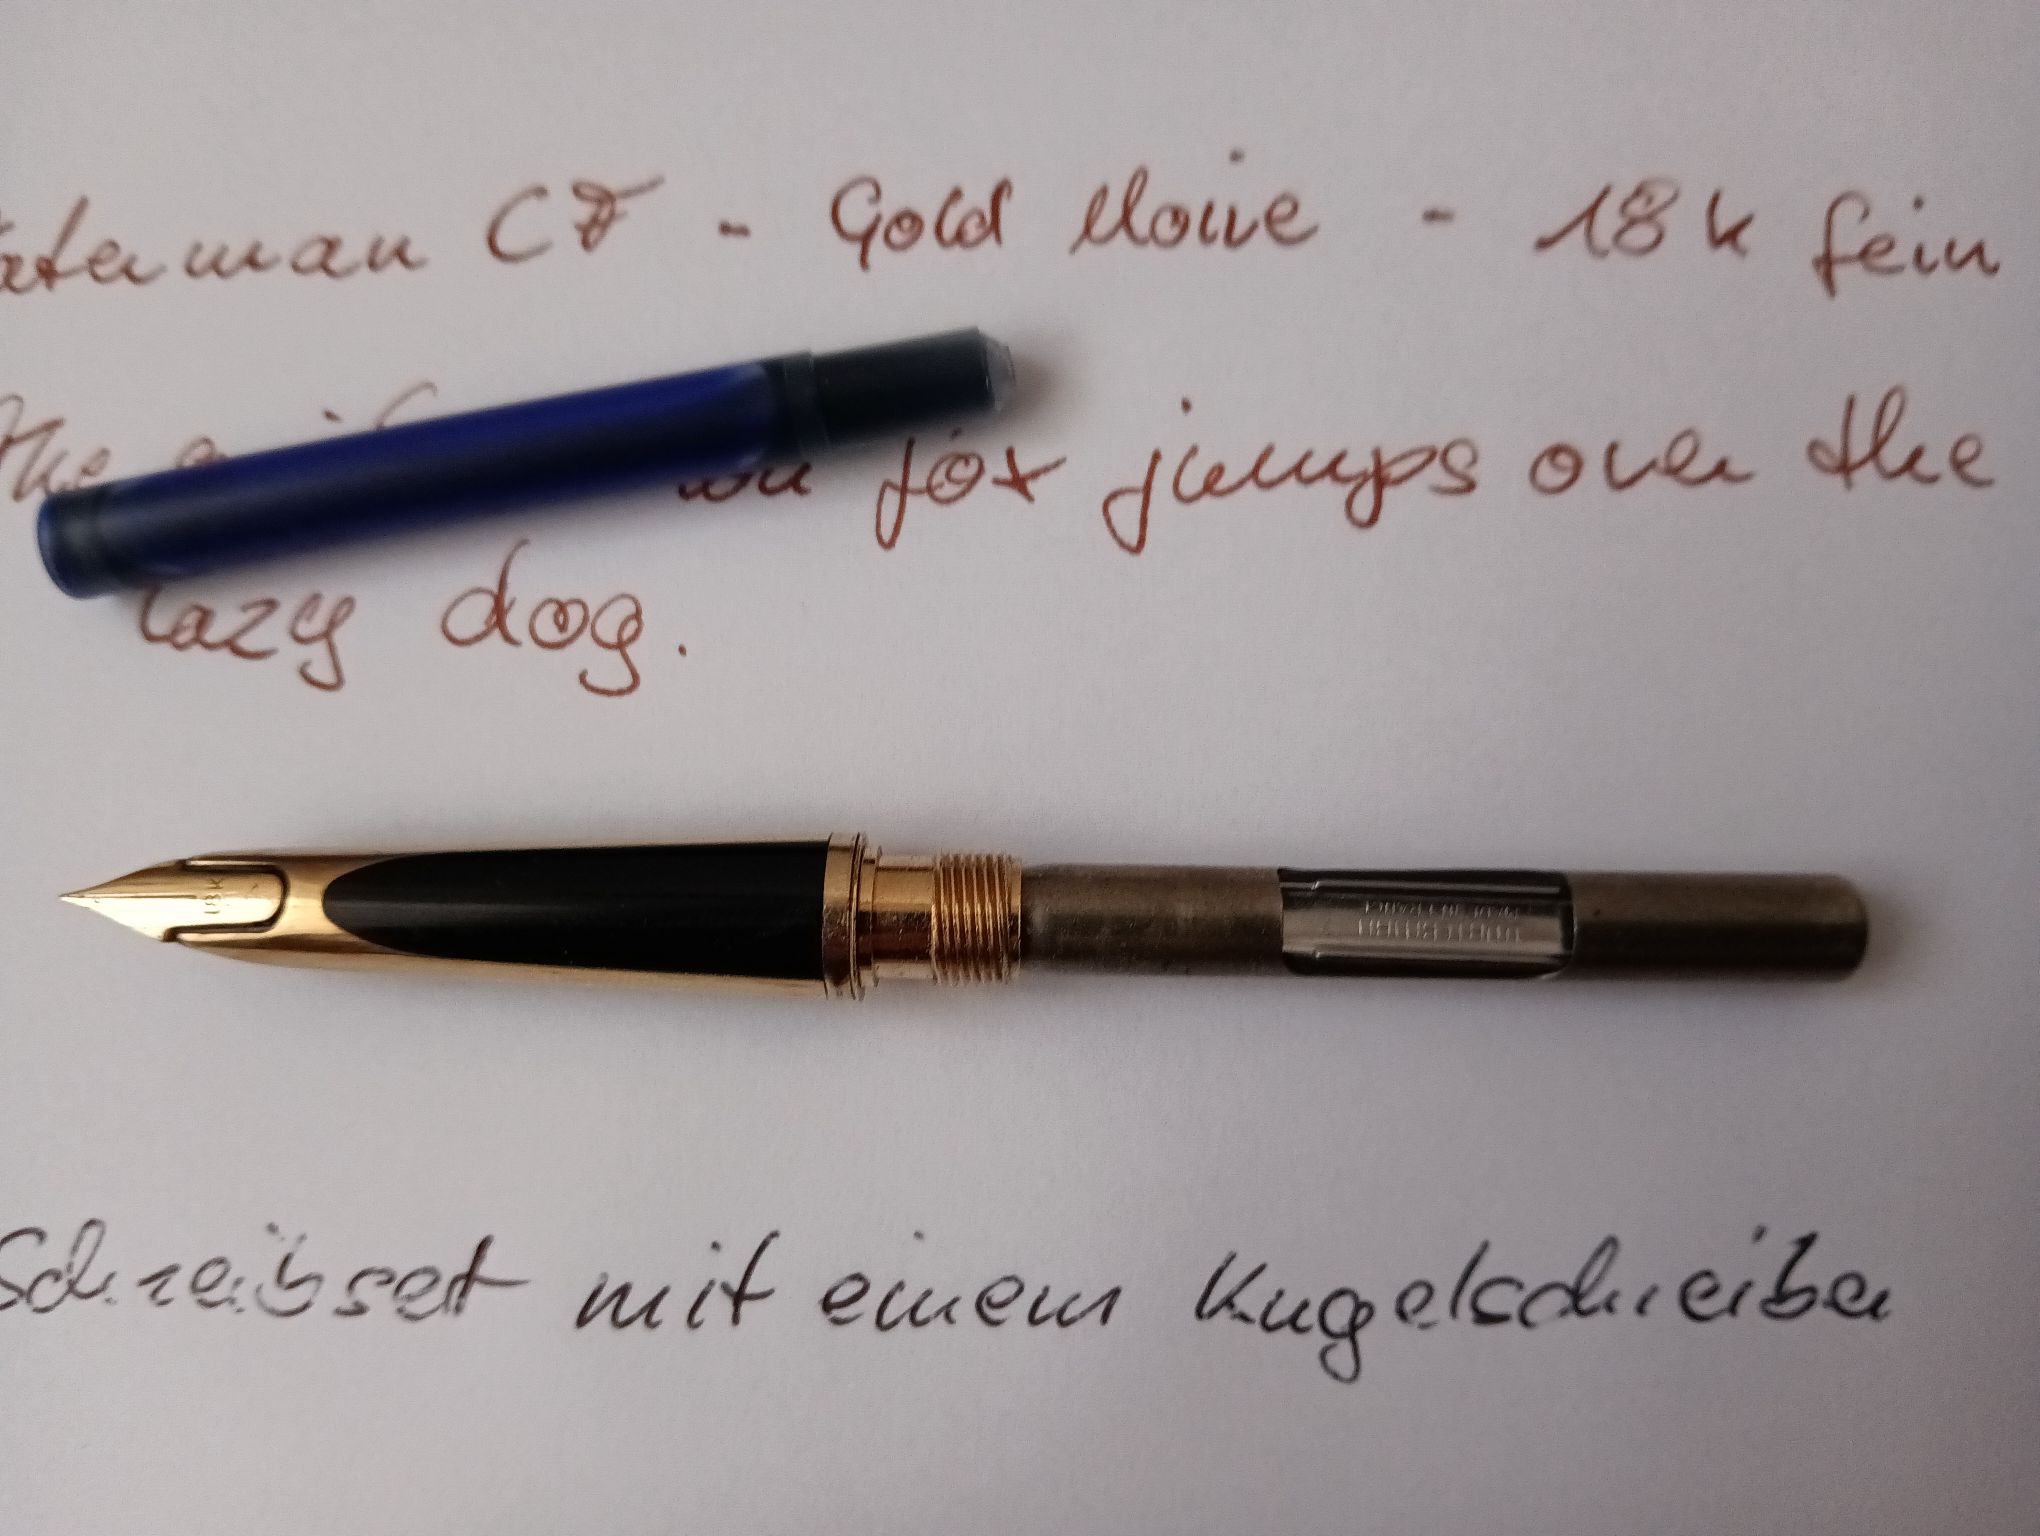 aterman CF - Gold Moire - 18 k fein
The fox jumps over the
lazy dog.
18K
WATERMAN
MADE IN FRANCE
Schreibset mit einem Kugelschreiber